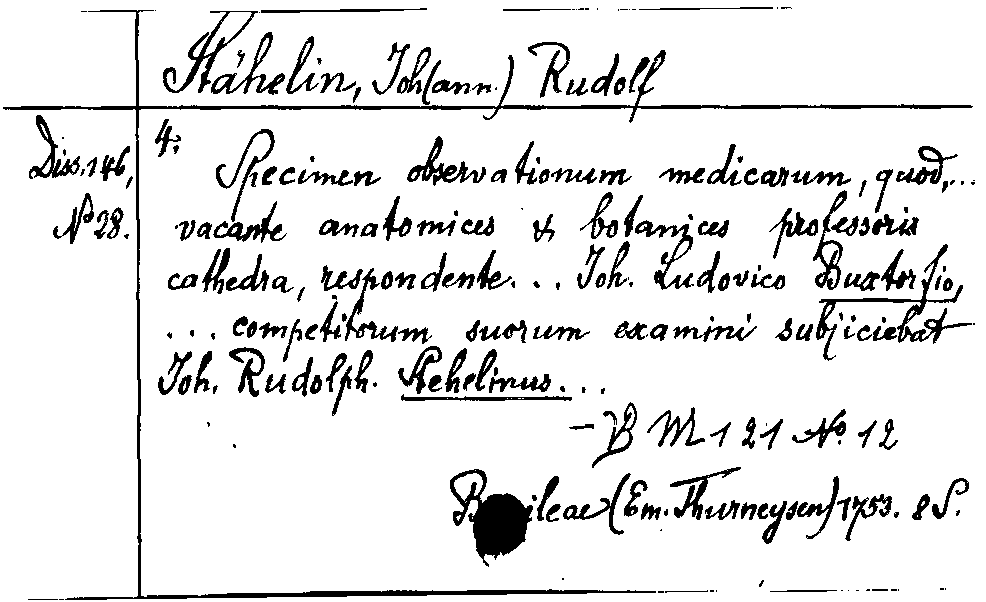 Stähelin, Joh(ann.) Rudolf
Diss. 146,
No 28.
4:
Specimen observationum medicarum, quod,...
vacante anatomices & botanices professoris
cathedra, respondente... Joh. Ludovico Buxtorfio,
... competitorum suorum examini subjiciebat
Joh. Rudolph. Stehelinus...
- B M 121 No. 12
Basileae (Em. Thurneysen) 1753. 8 S.